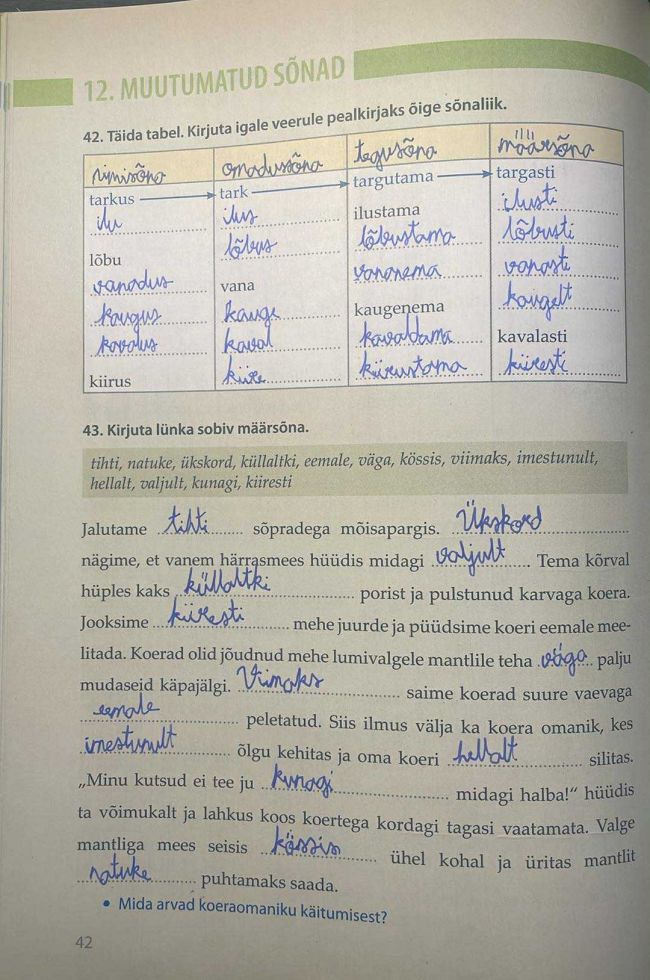 12. MUUTUMATUD SÕNAD
42. Täida tabel. Kirjuta igale veerule pealkirjaks õige sõnaliik.
nimisõna omadussõna tegusõna määrsõna
tarkus tark targutama targasti
ilu ilus ilustama ilusti
lõbu lõbus lõbustama lõbusti
vanadus vana vananema vanasti
kaugus kauge kaugenema kaugelt
kavalus kaval kavaldama kavalasti
kiirus kiire kiirustama kiiresti
43. Kirjuta lünka sobiv määrsõna.
tihti, natuke, ükskord, küllaltki, eemale, väga, kössis, viimaks, imestunult,
hellalt, valjult, kunagi, kiiresti
Jalutame tihti sõpradega mõisapargis. Ükskord
nägime, et vanem härrasmees hüüdis midagi valjult. Tema kõrval
hüples kaks küllaltki porist ja pulstunud karvaga koera.
Jooksime kiiresti mehe juurde ja püüdsime koeri eemale mee-
litada. Koerad olid jõudnud mehe lumivalgele mantlile teha väga palju
mudaseid käpajälgi. Viimaks saime koerad suure vaevaga
eemale peletatud. Siis ilmus välja ka koera omanik, kes
imestunult õlgu kehitas ja oma koeri hellalt silitas.
„Minu kutsud ei tee ju kunagi midagi halba!“ hüüdis
ta võimukalt ja lahkus koos koertega kordagi tagasi vaatamata. Valge
mantliga mees seisis kössis ühel kohal ja üritas mantlit
natuke puhtamaks saada.
• Mida arvad koeraomaniku käitumisest?
42